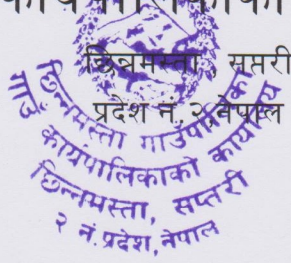 कार्यपालिकाको
छिन्नमस्ता , सप्तरी
प्रदेश नं. २ नेपाल
छिन्नमस्ता गाउँपालिका
गाउँ कार्यपालिकाको कार्यालय
छिन्नमस्ता, सप्तरी
२ नं. प्रदेश, नेपाल